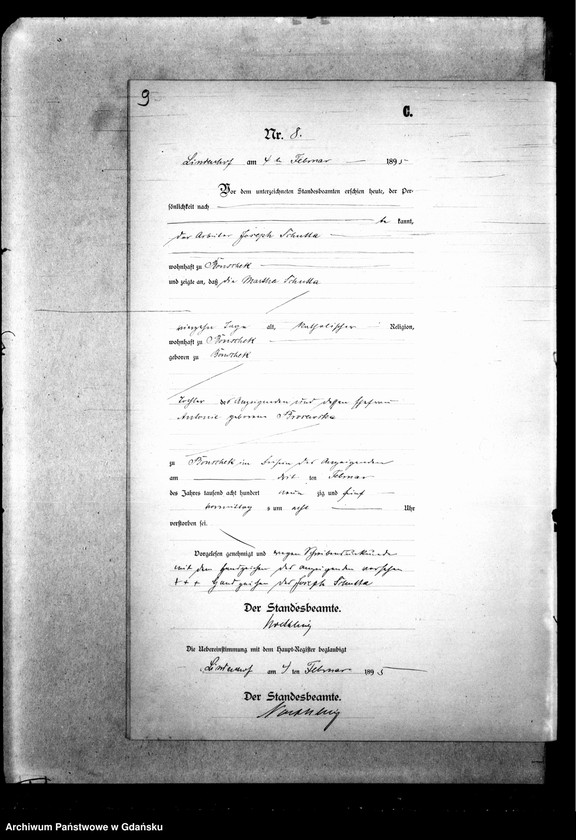 9
C.
Nr. 8.
Lindenhof am 4 ten Februar 1895
Vor dem unterzeichneten Standesbeamten erschien heute, der Per-
sönlichkeit nach
be kannt,
der Arbeiter Joseph Schulla
wohnhaft zu
und zeigte an, daß die Martha Schulla
Tage alt, katholischer Religion,
wohnhaft zu
geboren zu
Tochter des Anzeigenden und dessen Ehefrau
Antonie geborene
zu im Hause des Anzeigenden
am drit ten Februar
des Jahres tausend acht hundert neun zig und fünf
Vormittag s um acht Uhr
verstorben sei.
Vorgelesen, genehmigt und wegen Schreibensunkunde
mit dem Handzeichen des Anzeigenden versehen
+ + + Handzeichen des Joseph Schulla
Der Standesbeamte.
Die Uebereinstimmung mit dem Haupt-Register beglaubigt
Lindenhof am 4 ten Februar 1895
Der Standesbeamte.
Archiwum Państwowe w Gdańsku